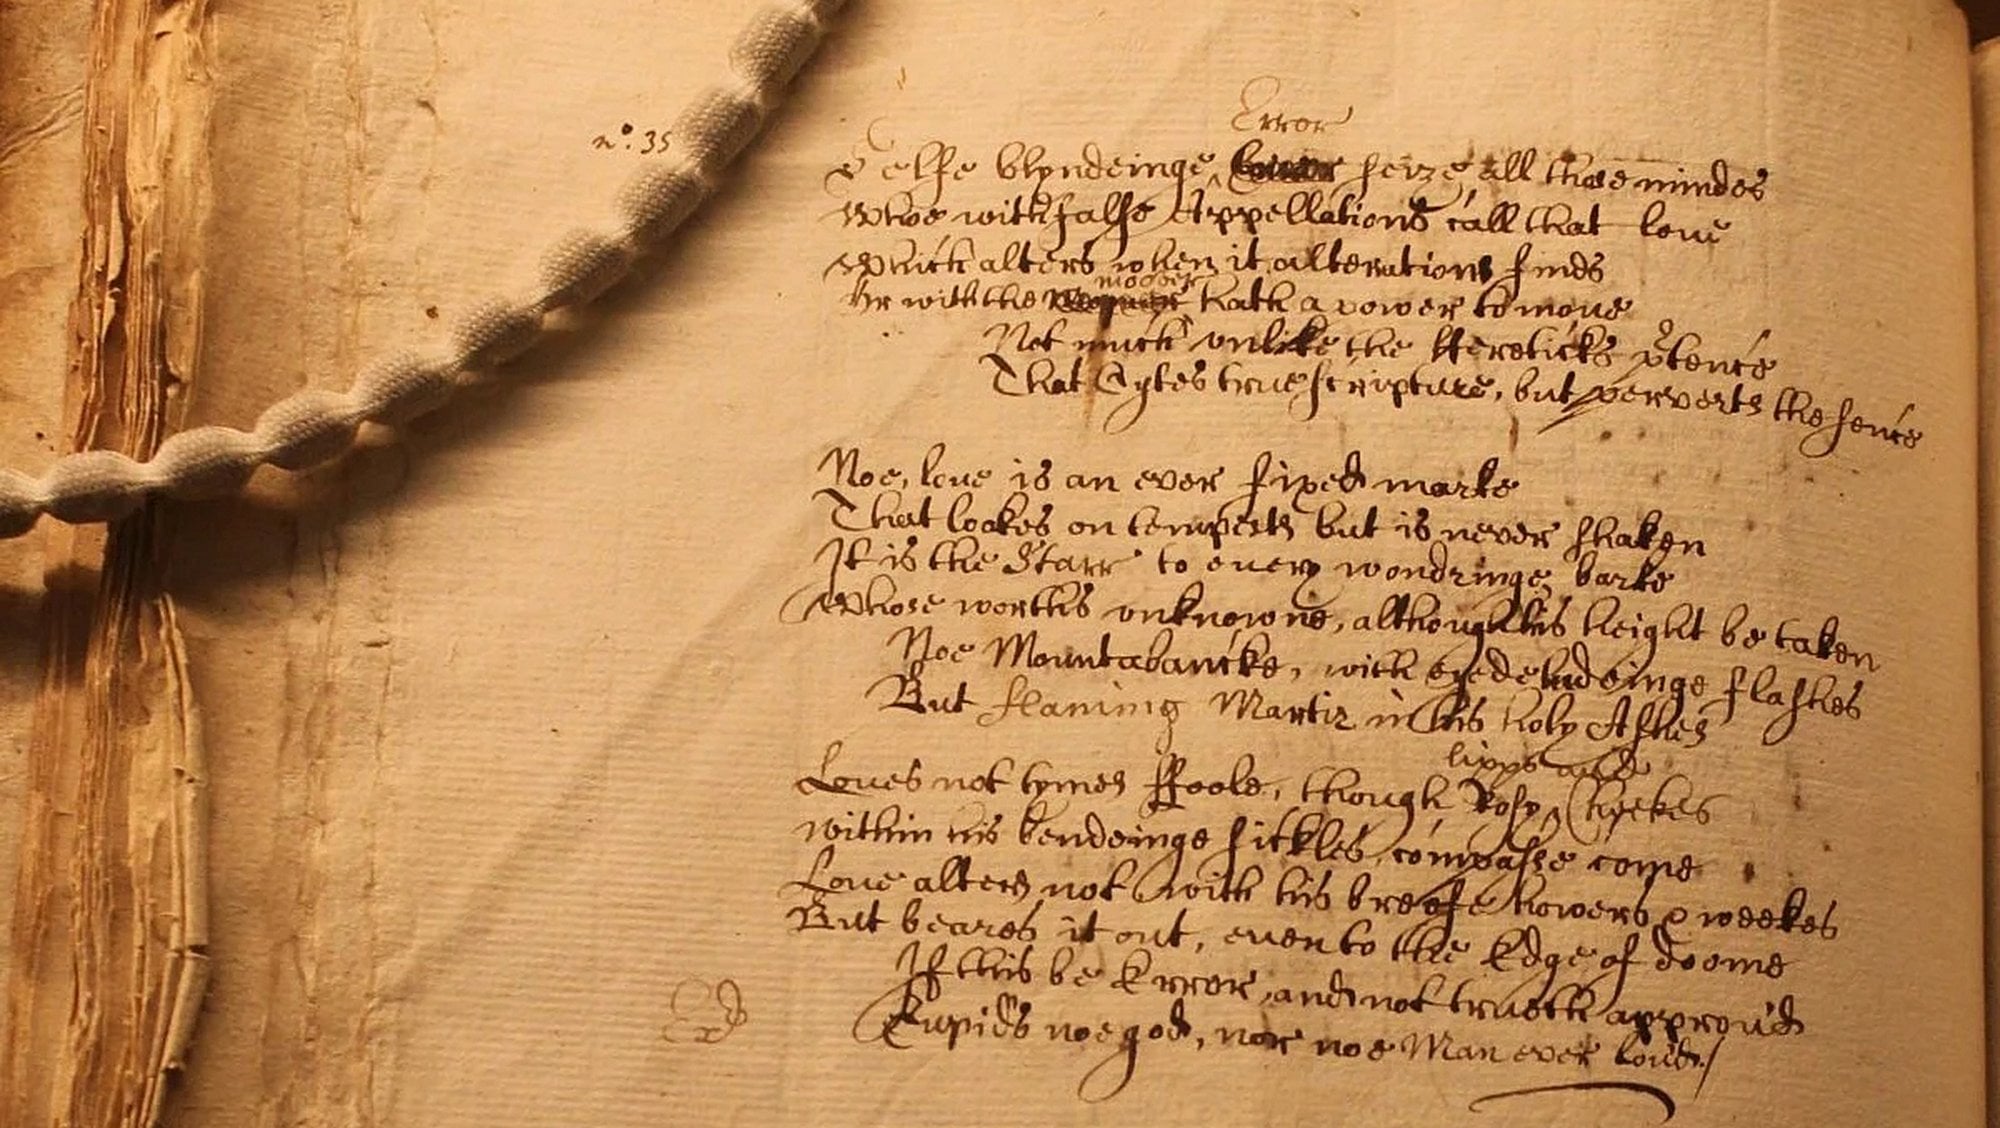 nº. 35
Error
Selfe blyndeinge, seize all those mindes
Whoe with false Appellations call that loue
Which alters when it alterations finds
mover
Or with the hath a power to moue
Not much vnlike the Heretickes ptence
That Cytes true scripture, but perverts the sence
Noe, loue is an ever fixed marke
That lookes on tempests but is never shaken
It is the Starr to euery wondringe barke
Whose worths vnknowne, although his height be taken
Noe Mountabancke, with eyedeludeinge flashes
But flaming Martir in his holy Ashes
lipps and
Loues not tymes ffoole, though Rosy Cheekes
within his bendeinge sickles compasse come
Loue alters not with his breife howers & weekes
But beares it out, euen to the Edge of doome
If this be Error, and not trueth approu'd
Cupids noe god, nor noe Man ever lou'd./